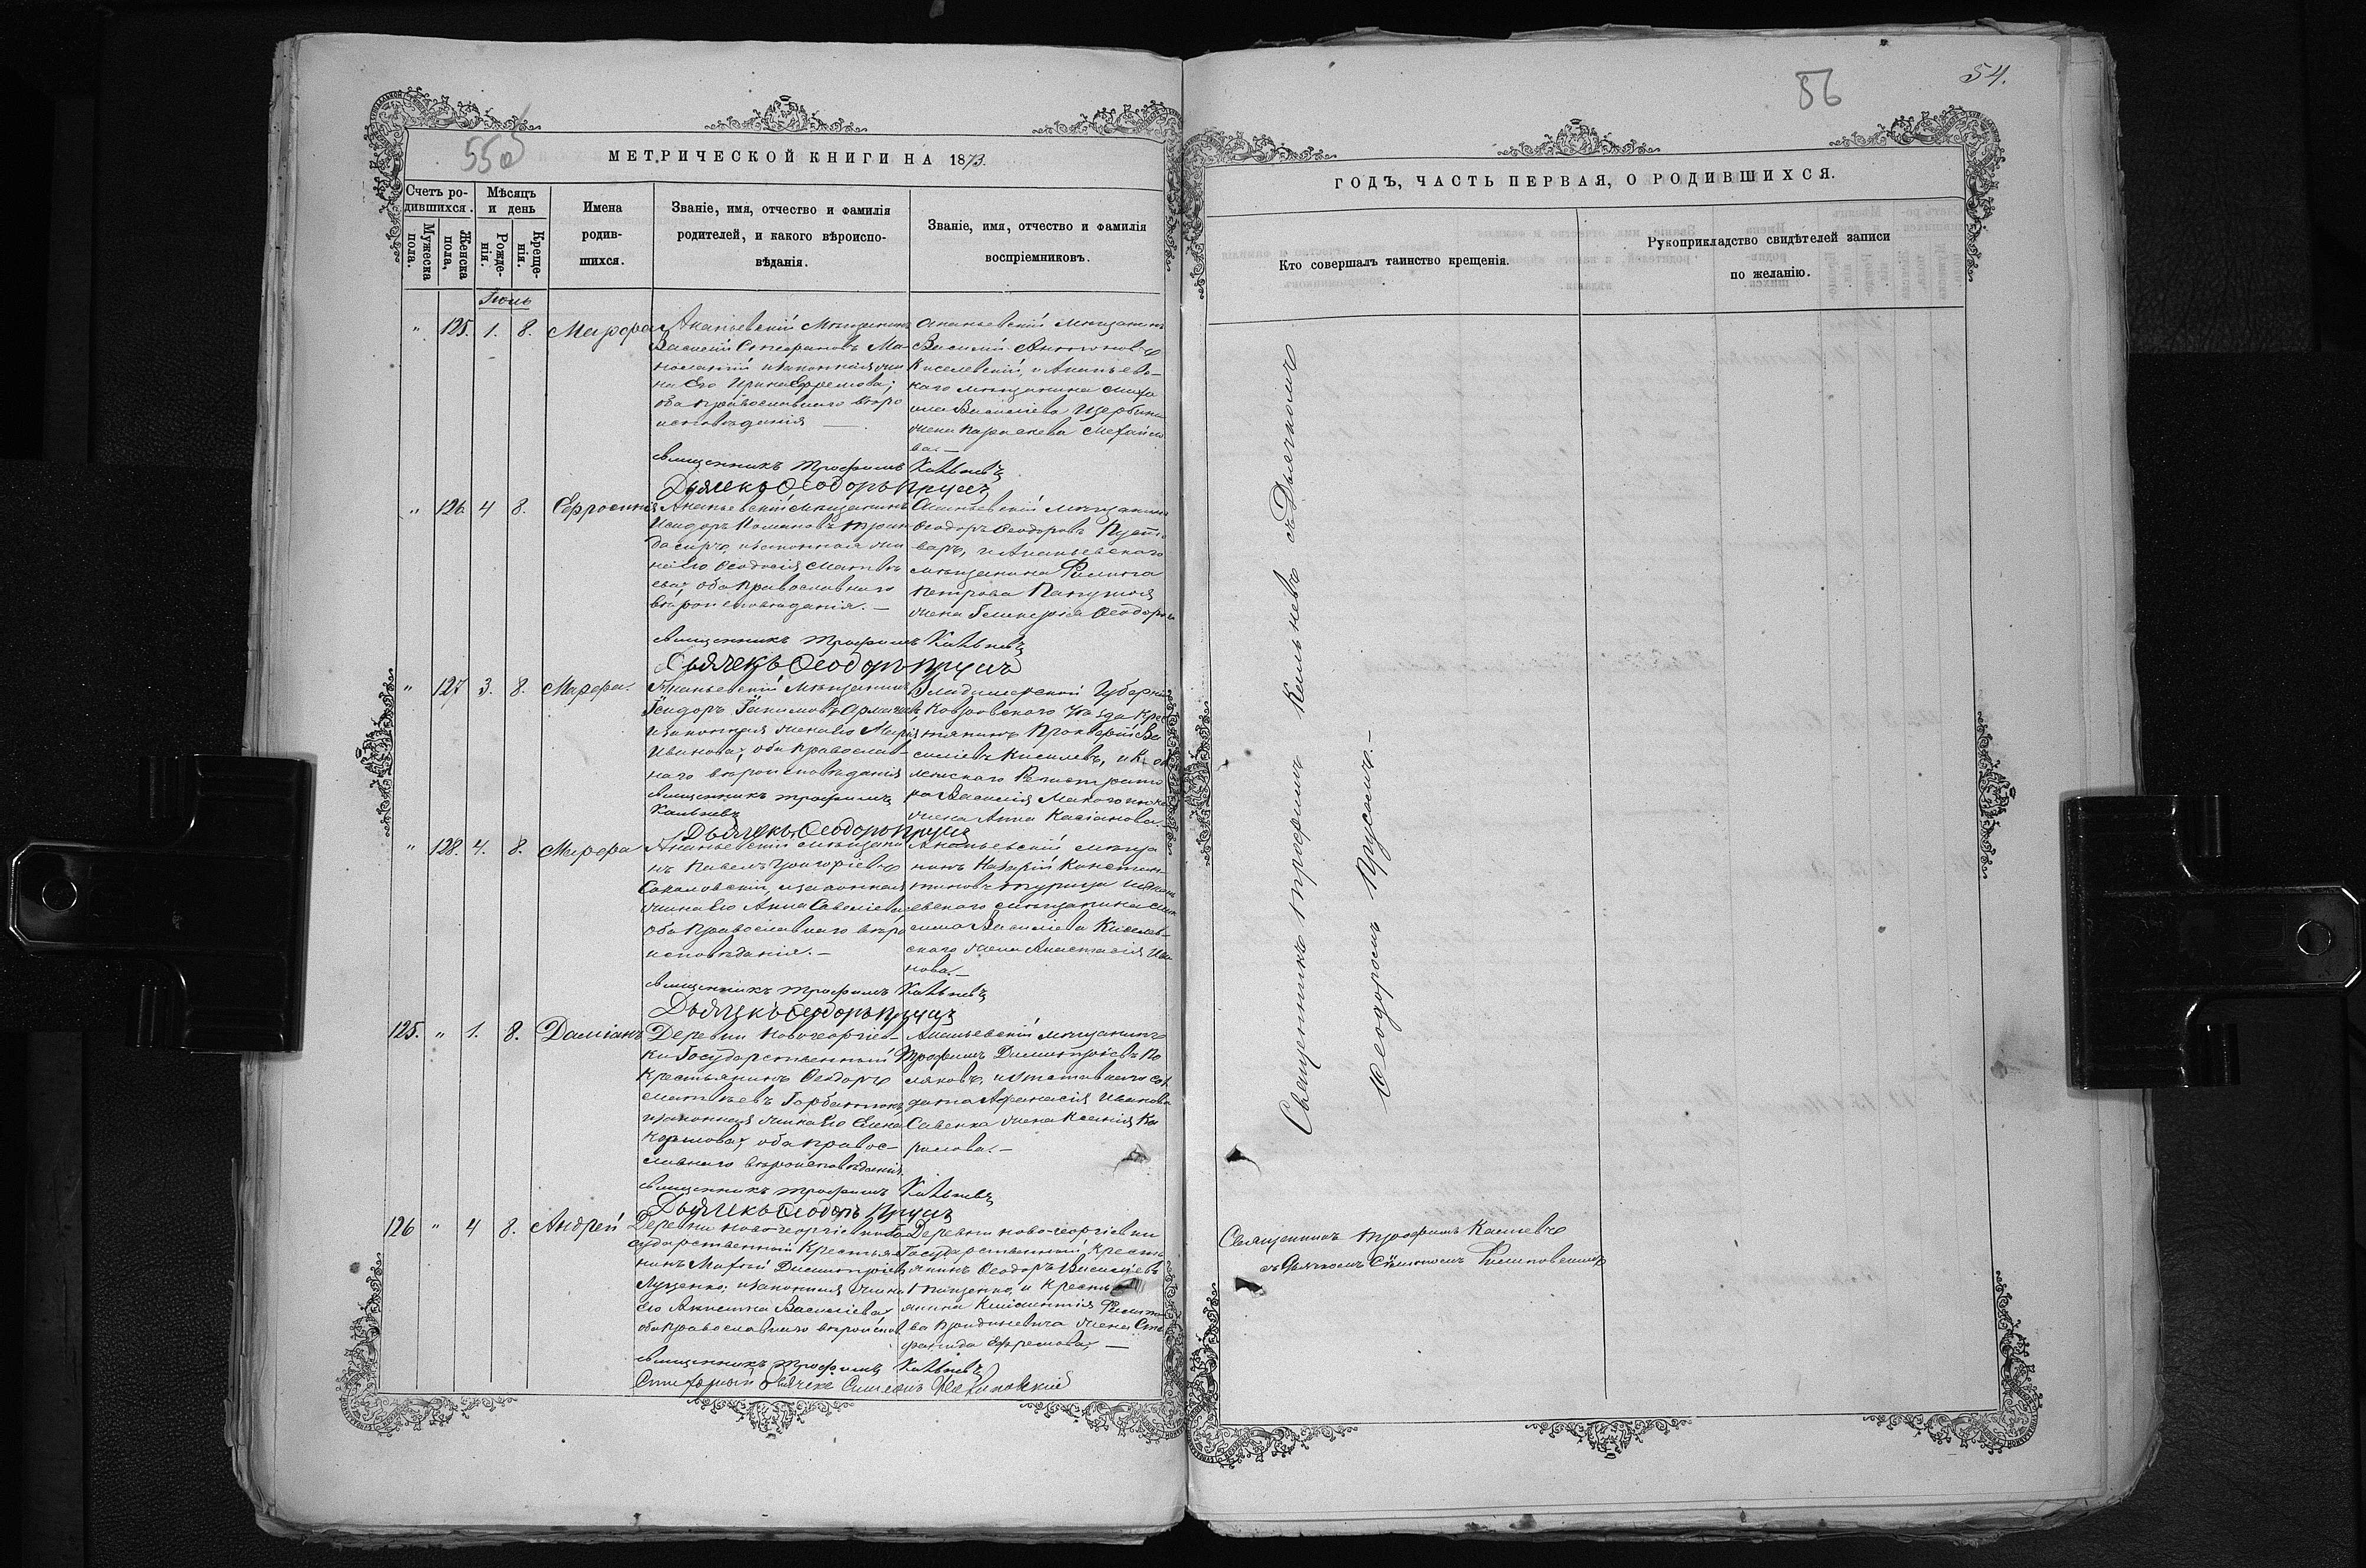 55об
МЕТРИЧЕСКОЙ КНИГИ НА 1873.
Счетъ родившихся.
Мѣсяцъ и день
Имена родившихся.
Званіе, имя, отчество и фамилія родителей, и какого вѣроисповѣданія.
Званіе, имя, отчество и фамилія воспріемниковъ.
Мужеска пола.
Женска пола.
Рожденія.
Крещенія.
Іюль
" 125. 1. 8. Марфа
Ананьевскій мѣщанинъ
Василій Стефановъ
и законная же
на его Ирина Ефремова;
оба православнаго вѣро
исповѣданія —
Ананьевскій мѣщанинъ
Василій Антоновъ
Киселевскій, и Ананьевс-
каго мѣщанина Миха
ила Васильева Щербины
жена Параскева Михайло
ва.—
Священникъ Трофимъ Кальневъ
Дьячекъ Ѳеодоръ Прусъ
" 126. 4 8. Ефросинія
Ананьевскій мѣщанинъ
Исидоръ Романовъ
и законная же
на его Ѳеодосія Матвѣ
ева; оба православнаго
вѣроисповѣданія.—
Ананьевскій мѣщанинъ
Ѳеодоръ Ѳеодоровъ
и Ананьевскаго
мѣщанина Филиппа
Петрова
жена Гликерія Ѳеодорова
Священникъ Трофимъ Кальневъ
Дьячекъ Ѳеодоръ Прусъ
" 127 3. 8. Марфа.
Ананьевскій мѣщанинъ
Ісидоръ Іакимовъ
и законная жена его Марія
Иванова; оба православ-
наго вѣроисповѣданія
Священникъ Трофимъ
Кальневъ
Владимерской Губерніи
Ковровскаго уѣзда крес
тянинъ Прокофій Ва
сильевъ Киселевъ, и Кол
лежскаго Регистрато
ра Василія
жена Анна Касіанова.
Дьячекъ Ѳеодоръ Прусъ
" 128. 4. 8. Марфа
Ананьевскій мѣщани
нъ Павелъ Григоріевъ
Соколовскій, и законная
жена его Анна Савеліева,
оба православнаго вѣро
исповѣданія.—
Ананьевскій мѣща
нинъ Назарій Констан
тиновъ и Анань
евскаго мѣщанина
Васильева Киселев-
скаго жена Анастасія Ива
нова.—
Священникъ Трофимъ Кальневъ
Дьячекъ Ѳеодоръ Прусъ
125. " 1. 8. Даміанъ
Деревни Новогеоргіев-
ки Государственный
Крестьянинъ Ѳеодоръ
Матвѣевъ Горбатюкъ,
и законная жена его Елена
оба правос-
лавнаго вѣроисповѣданія.
Ананьевскій мѣщанинъ
Трофимъ Димитріевъ По
ляковъ, и отставнаго сол
дата Аѳанасія Иванова
Савенка жена Ксенія Ки
рилова.—
Священникъ Трофимъ Кальневъ
Дьячекъ Ѳеодоръ Прусъ
126 " 4 8. Андрей
Деревни Ново-георгіевки Го
сударственный Крестья
нинъ Матѳей Димитріевъ
Луценко; и законная жена
его Акилина Василіева;
оба православнаго вѣроиспов
Деревни Ново-георгіевки
Государственный Кресть
янинъ Ѳеодоръ Василіевъ
и Кресть
янина Климентія Филиппо
ва жена Сте
фанида Ефремова,—
Священникъ Трофимъ Кальневъ
Дьячекъ Симеонъ Филиповскій
56
54.
ГОДЪ, ЧАСТЬ ПЕРВАЯ, О РОДИВШИХСЯ.
Кто совершалъ таинство крещенія.
Рукоприкладство свидѣтелей записи по желанію.
Священникъ Трофимъ Кальневъ съ Дьячкомъ
Ѳеодоромъ Прусомъ.—
Священникъ Трофимъ Кальневъ
съ Дьячкомъ Симеономъ Филиповскимъ